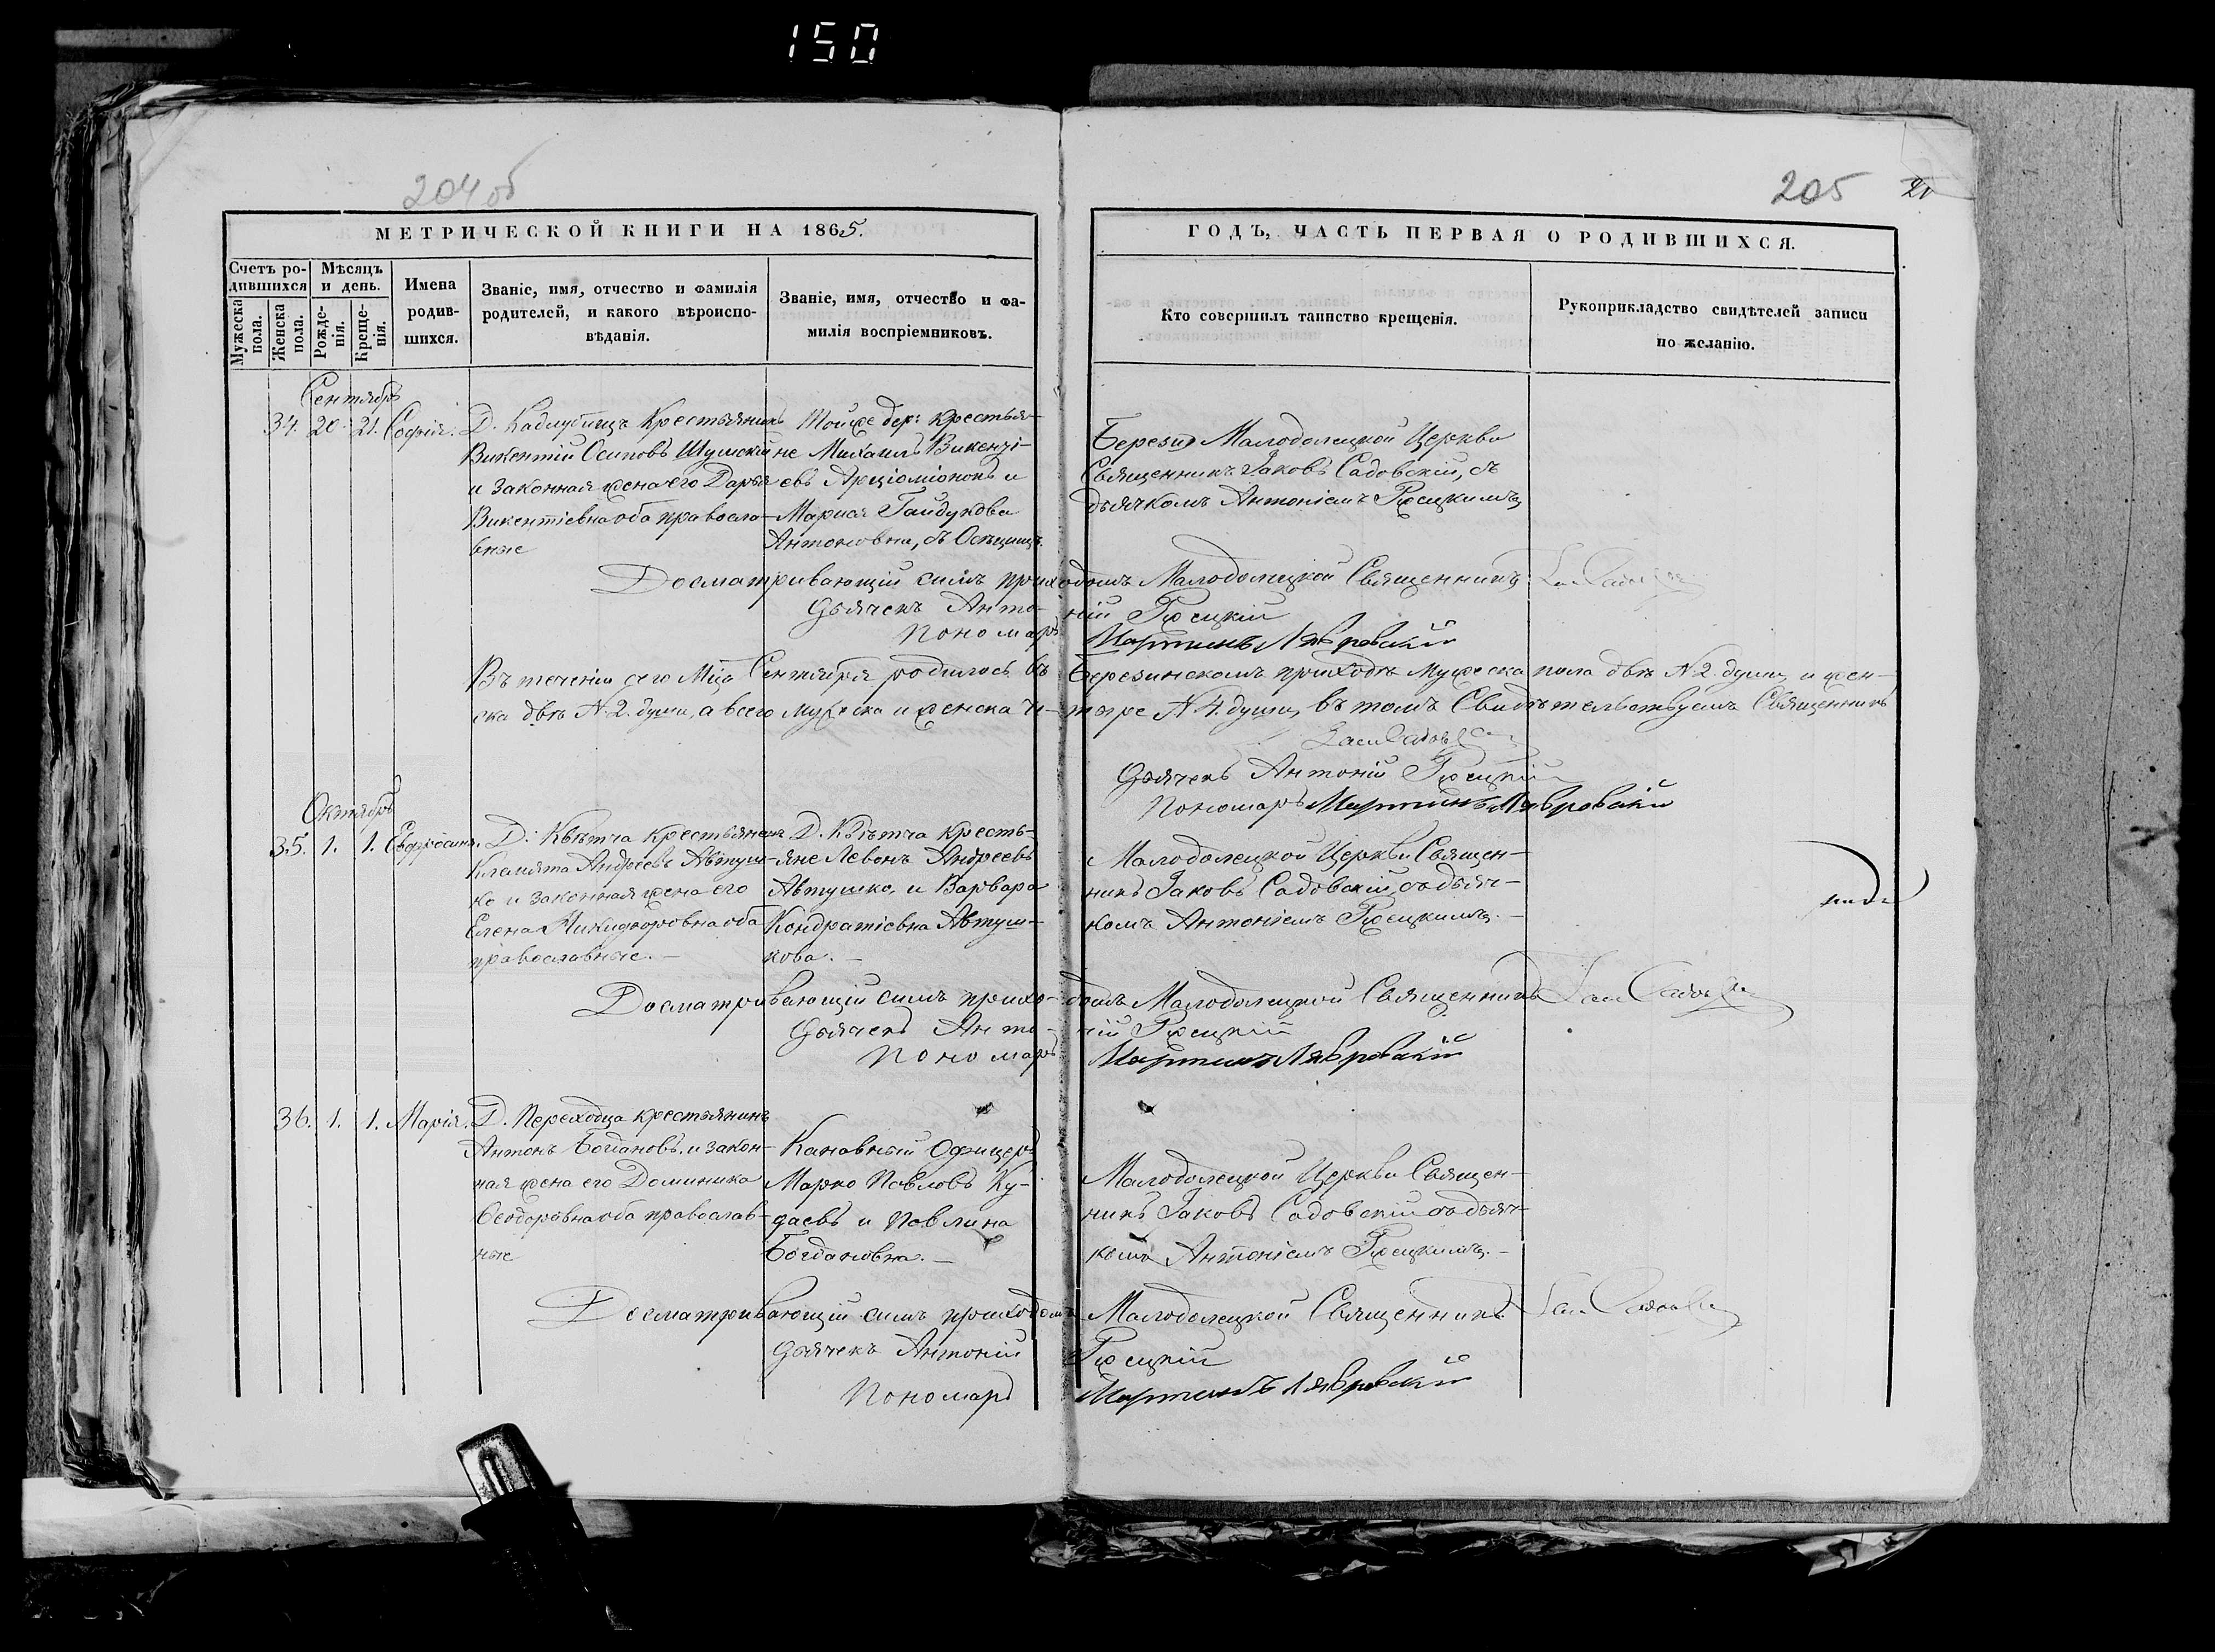 150
204 об
МЕТРИЧЕСКОЙ КНИГИ НА 1865.
Счетъ родившихся
Мѣсяцъ и день.
Мужеска пола.
Женска пола.
Рожденія.
Крещенія.
Имена родившихся.
Званіе, имя, отчество и фамилія родителей, и какого вѣроисповѣданія.
Званіе, имя, отчество и фамилія воспріемниковъ.
205
ГОДЪ, ЧАСТЬ ПЕРВАЯ О РОДИВШИХСЯ.
Кто совершилъ таинство крещенія.
Рукоприкладство свидѣтелей записи по желанію.
Сентябрь
34. 20. 21. Софія.
Д. Кадлубищъ Крестьянинъ
Викентій Осиповъ Шумскій
и законная жена его Дарья
Викентіевна оба правосла-
вные
Тойже дер: крестья-
не Михаилъ Викенті-
евъ и
Мариа Гайдукова
Антоновна, съ
Малодолецкой Церкви
Священникъ Іаковъ Садовскій, съ
дьячкомъ Антоніемъ Ржецкимъ
Досматривающій симъ приходомъ Малодолецкой Священникъ
Дьячекъ Антоній Ржецкій
Пономарь Мартинъ Лавровскій
Въ теченіи сего Мца Сентября родилось въ Березинскомъ приходѣ мужеска пола двѣ N 2. души, и жен-
ска двѣ N. 2. души, а всего мужеска и женска че-тыре N 4. души, въ томъ Свидѣтельствуемъ Священникъ
Дьячекъ Антоній Ржецкій
Пономарь Мартинъ Лавровскій
Октябрь
35. 1. 1.
Д: Квѣтча Крестьянинъ
Андреевъ Автуш-
ко и законная жена его
Елена Никифоровна оба
православные. –
Д. Квѣтча кресть-
яне Левонъ Андреевъ
Автушко, и Варвара
Кондратіевна Автуш-
кова. –
Малодолецкой Церкви Священ-
никъ Іаковъ Садовскій, съ дьяч-
комъ Антоніемъ Ржецкимъ. –
Досматривающій симъ прихо-домъ Малодолецкой Священникъ
Дьячекъ Анто-ній Ржецкій
Пономарь Мартинъ Лавровскій
36. 1. 1. Марія.
Д. Переходца крестьянинъ
Антонъ Богдановъ, и закон-
ная жена его Доминика
Ѳеодоровна оба православ-
ные
Офицеръ
Марко Павловъ Ку-
и Павлина
Богдановна. –
Малодолецкой Церкви Священ-
никъ Іаковъ Садовскій съ дьяч-
комъ Антоніемъ Ржецкимъ. –
Досматривающій симъ приходомъ Малодолецкой Священникъ
Дьячекъ Антоній Ржецкій
Пономарь Мартинъ Лавровскій